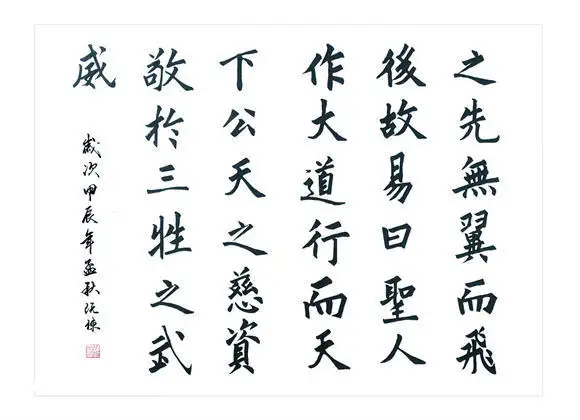 之先無翼而飛
後故易曰聖人
作大道行而天
下公天之慈資
敬於三牲之武
威
歲次甲辰年孟秋沅悚